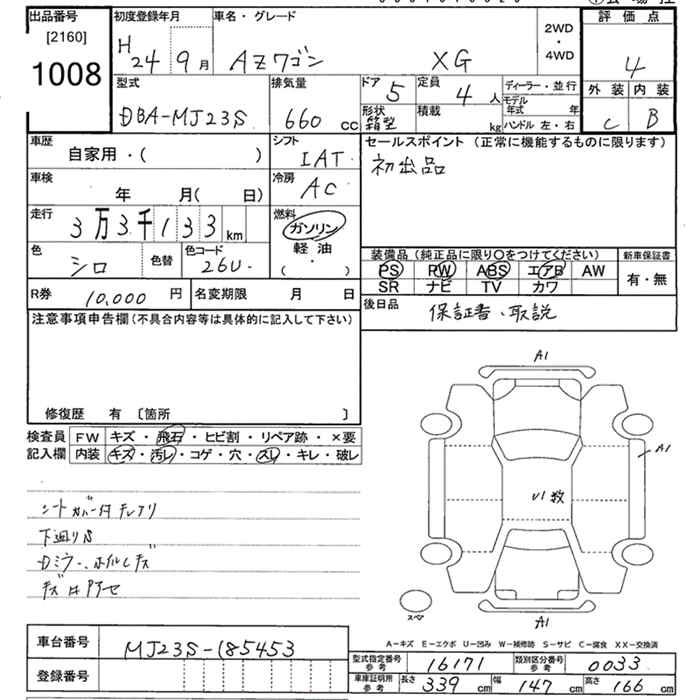 出品番号 初度登録年月 車名・グレード 2WD・4WD 評価点
[2160]
1008
H24 9月 AZワゴン XG 4
型式 排気量 ドア 5 定員 4人 ディーラー・並行 外装 内装
モデル年式 年
DBA-MJ23S 660cc 形状 箱型 積載 kg ハンドル 左・右 C B
車歴 自家用・( ) シフト IAT セールスポイント (正常に機能するものに限ります)
初出品
車検 年 月( 日) 冷房 AC
走行 3万3千133km 燃料 ガソリン
軽油
・( )
色 シロ 色替 色コード 26U
装備品(純正品に限り〇をつけてください) 新車保証書
PS PW ABS エアB AW 有・無
SR ナビ TV カワ
R券 10,000円 名変期限 月 日
後日品 保証書・取説
注意事項申告欄(不具合内容等は具体的に記入して下さい)
修復歴 有 〔箇所 〕
検査員 FW キズ・飛石・ヒビ割・リペア跡・×要
記入欄 内装 キズ・汚レ・コゲ・穴・スレ・キレ・破レ
シートカバー付
下廻りS
Dミラー、ホイルキズ
A1
A1
U1数
スペア
A1
A-キズ E-エクボ U-凹み W-補修跡 S-サビ C-腐食 XX-交換済
車台番号 MJ23S-185453
登録番号
型式指定番号 参考 16171 類別区分番号 参考 0033
車庫証明用 参考 長さ 339cm 幅 147cm 高さ 166cm